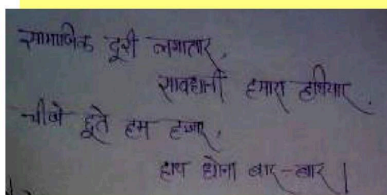 सामाजिक दूरी लगातार,
सावधानी हमारा हथियार.
चीजे छूते हम हजार,
हाथ धोना बार-बार।